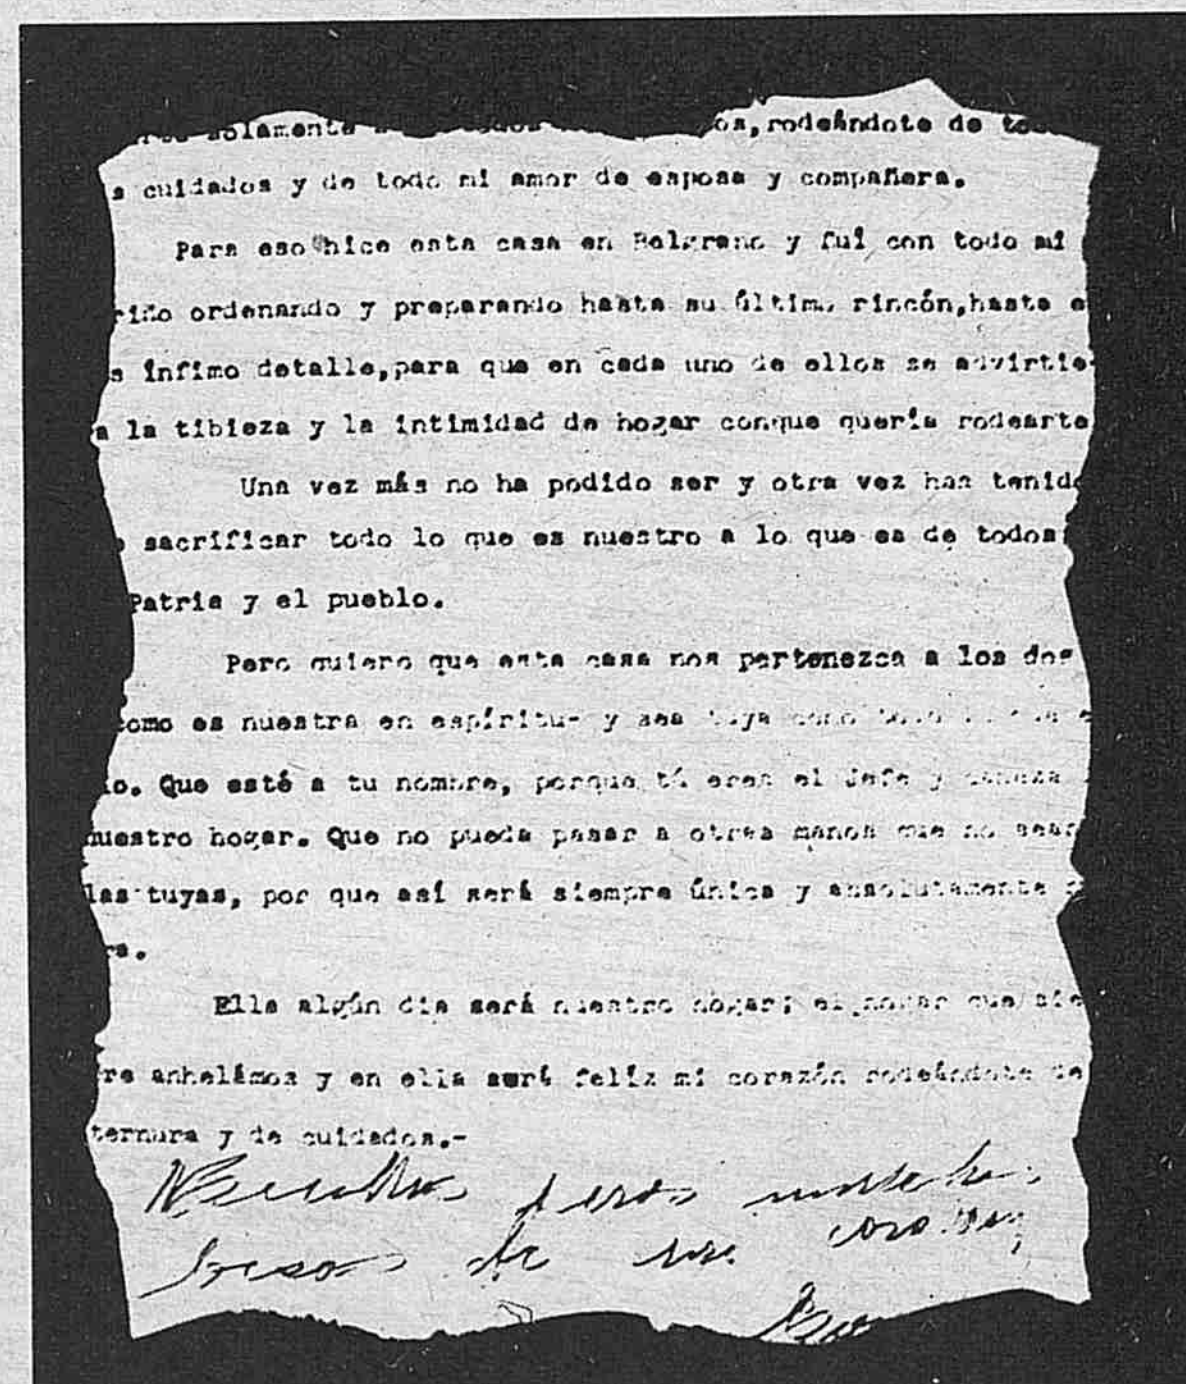 solamente os, rodeándote de to
s cuidados y de todo mi amor de esposa y compañera.
Para eso hice esta casa en Belgrano y fuí con todo mi
riño ordenando y preparando hasta su último rincón, hasta e
s ínfimo detalle, para que en cada uno de ellos se advirtie-
a la tibieza y la intimidad de hogar conque quería rodearte
Una vez más no ha podido ser y otra vez has tenido
e sacrificar todo lo que es nuestro a lo que es de todos:
Patria y el pueblo.
Pero quiero que esta casa nos pertenezca a los dos
como es nuestra en espíritu- y sea tuya como todo
ío. Que esté a tu nombre, porque tú eres el Jefe y cabeza
nuestro hogar. Que no pueda pasar a otras manos que no sean
las tuyas, por que así será siempre única y absolutamente
ra.
Ella algún día será nuestro hogar; el hogar que sie
re anhelámos y en ella será feliz mi corazón rodeándote de
ternura y de cuidados.-
muchos
besos de mi corazon